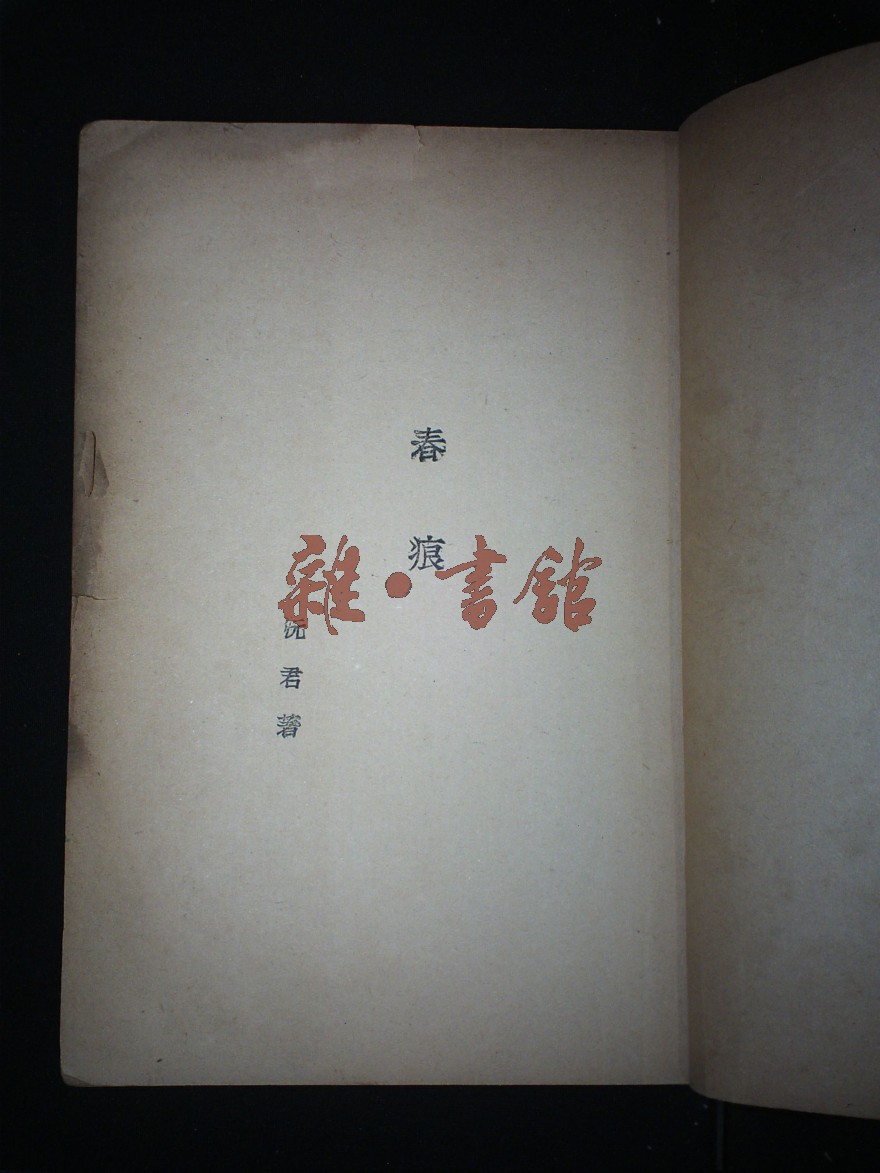 春痕
沅君著
雜·書館